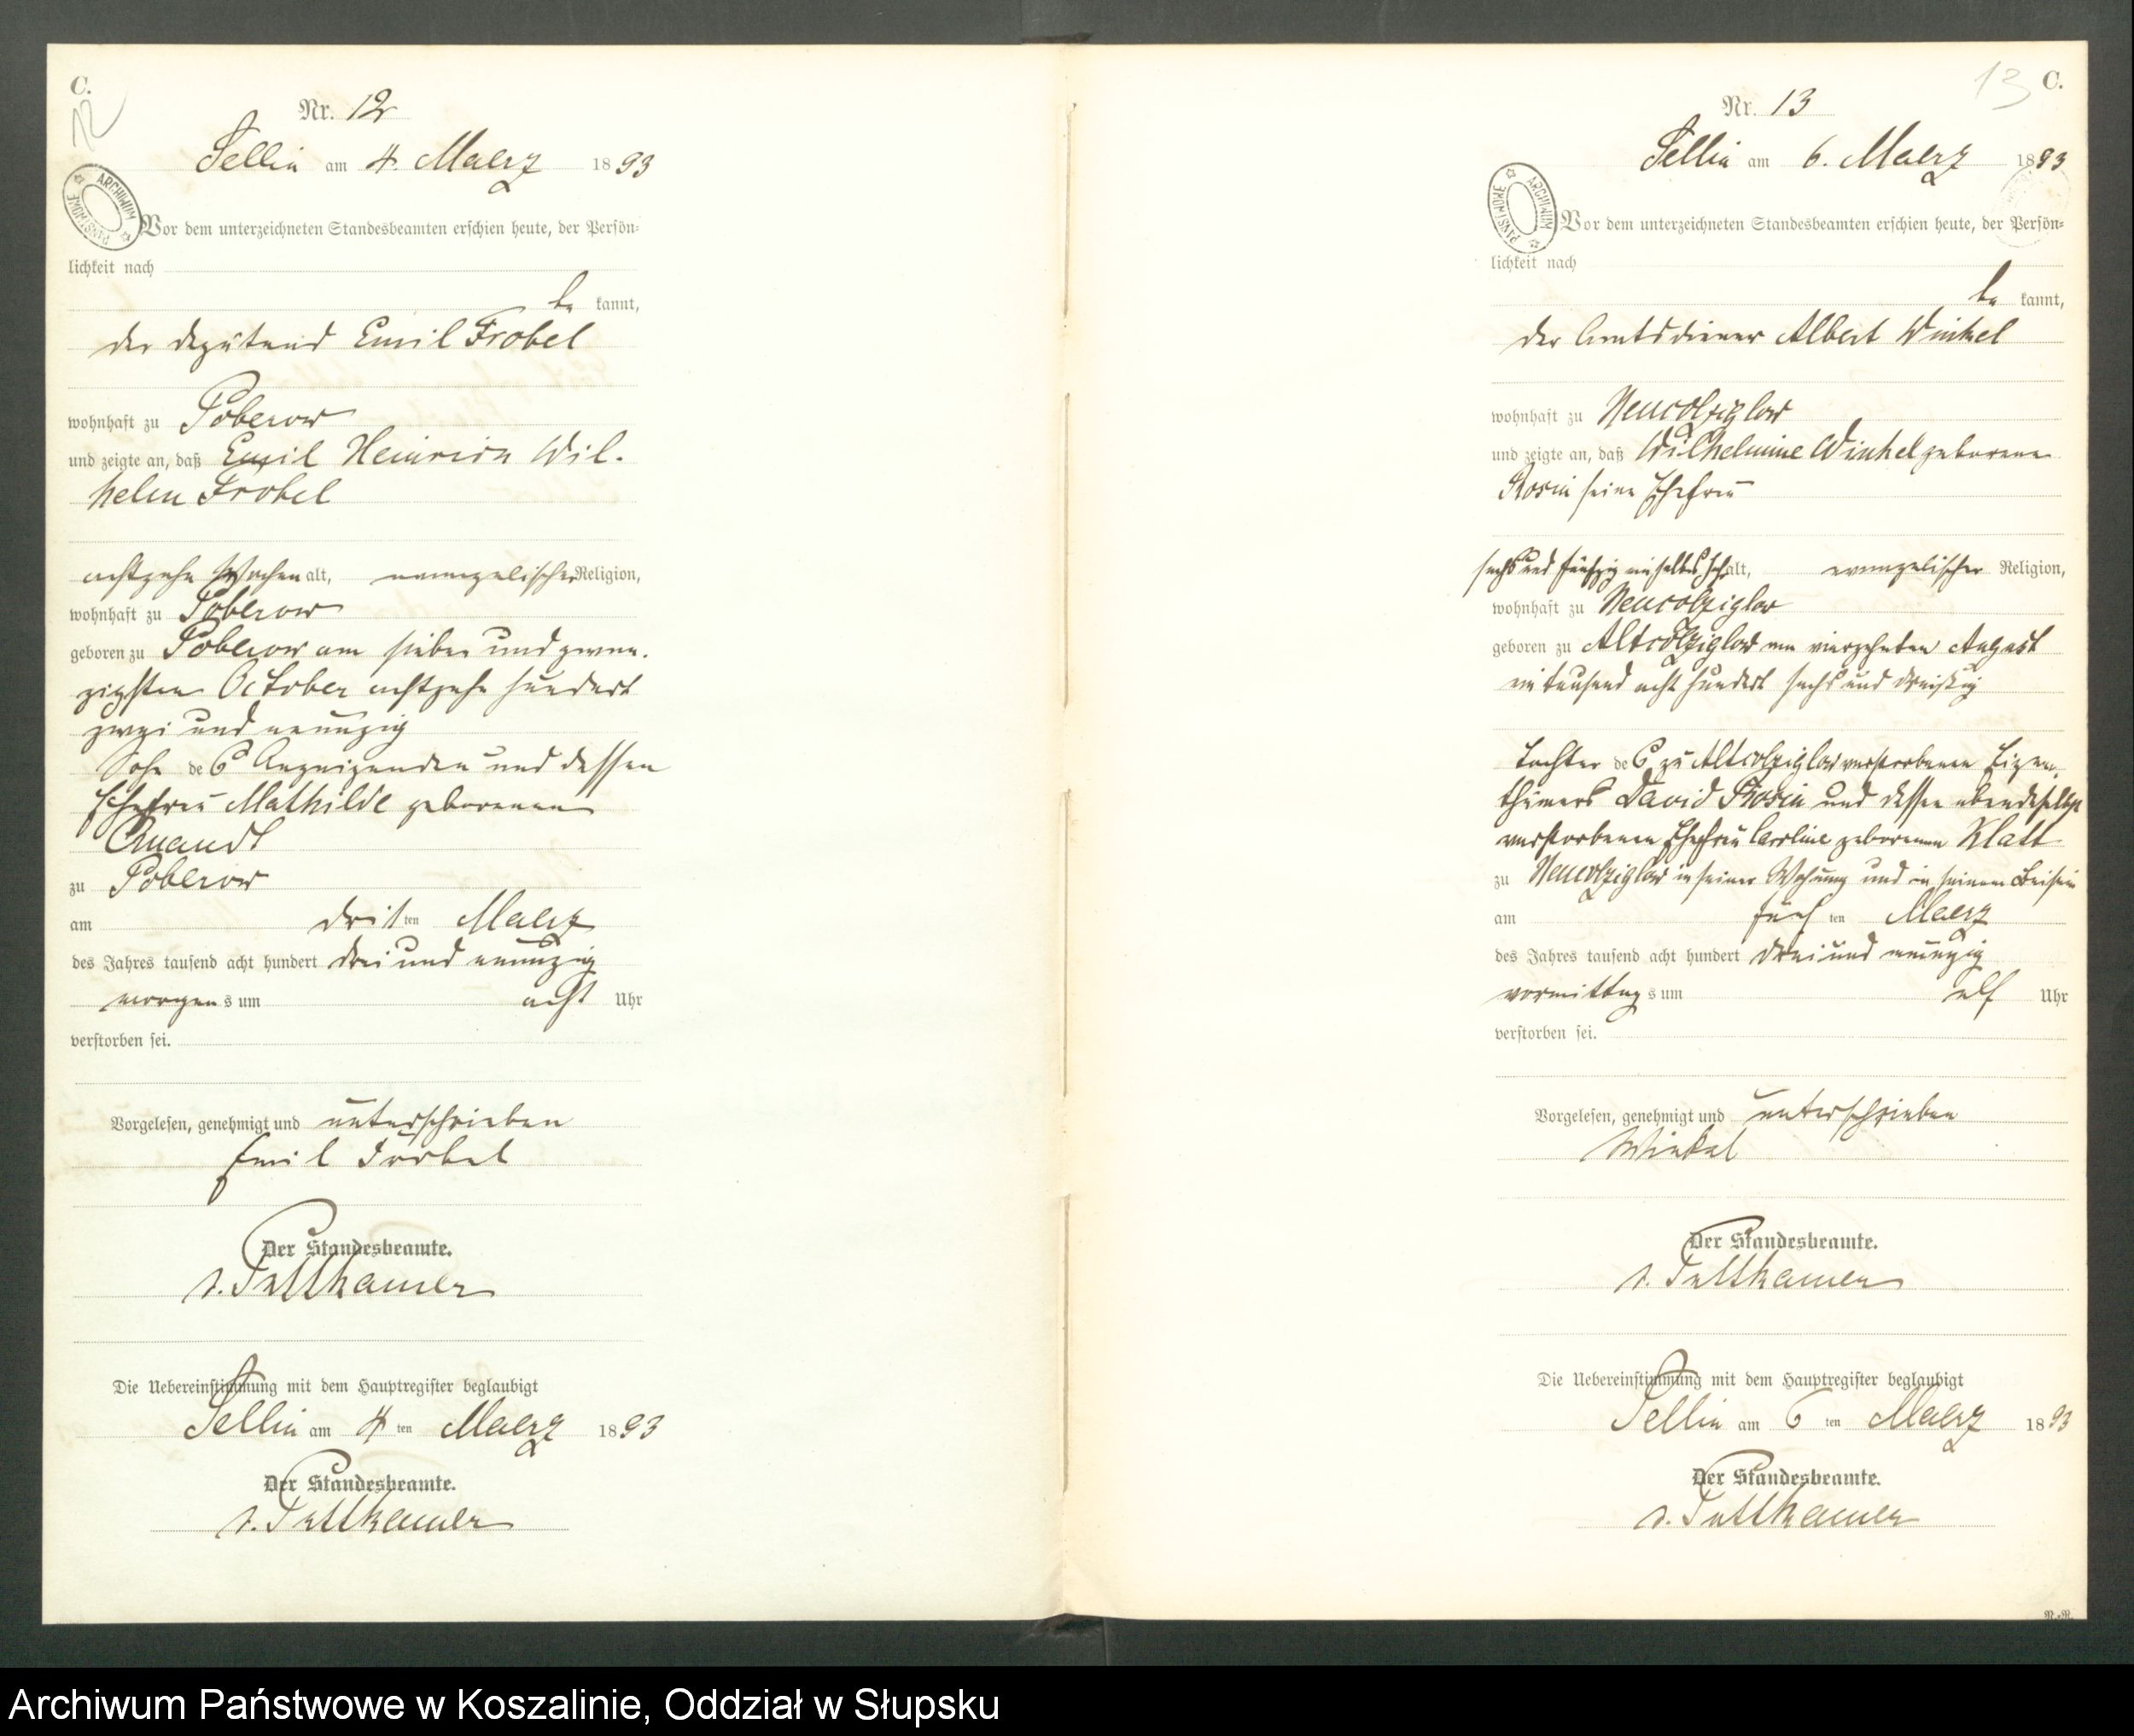 C.
12
Nr. 12
Sellin am 4. Maerz 1893
ARCHIWUM PAŃSTWOWE
Vor dem unterzeichneten Standesbeamten erschien heute, der Persön-
lichkeit nach
be kannt,
der Deputand Emil Frobel
wohnhaft zu Poberow
und zeigte an, daß Emil Heinrich Wil-
helm Frobel
achtzehn Wochen alt, evangelischer Religion,
wohnhaft zu Poberow
geboren zu Poberow am sieben und zwan-
zigsten October achtzehn hundert
zwei und neunzig
Sohn des Anzeigenden und dessen
Ehefrau Mathilde geborenen
zu Poberow
am dritten Maerz
des Jahres tausend acht hundert drei und neunzig
morgens um acht Uhr
verstorben sei.
Vorgelesen, genehmigt und unterschrieben
Emil Fröbel
Der Standesbeamte.
v. Puttkamer
Die Uebereinstimmung mit dem Hauptregister beglaubigt
Sellin am 4ten Maerz 1893
Der Standesbeamte.
v. Puttkamer
13 C.
Nr. 13
Sellin am 6. Maerz 1893
ARCHIWUM PAŃSTWOWE
Vor dem unterzeichneten Standesbeamten erschien heute, der Persön-
lichkeit nach
be kannt,
der Amtsdiener Albert Winkel
wohnhaft zu Neucolziglow
und zeigte an, daß Wilhelmine Winkel geborene
Rosin seine Ehefrau
sechs und fünfzig ein halbes Jahr alt, evangelischer Religion,
wohnhaft zu Neucolziglow
geboren zu Altcolziglow am vierzehnten August
ein tausend acht hundert sechs und dreißig
Tochter des zu Altcolziglow verstorbenen Eigen-
thümers David Rosin und dessen ebendaselbst
verstorbenen Ehefrau Caroline geborenen Klatt
zu Neucolziglow in seiner Wohnung und in seinem Beisein
am fünften Maerz
des Jahres tausend acht hundert drei und neunzig
vormittags um elf Uhr
verstorben sei.
Vorgelesen, genehmigt und unterschrieben
Winkel
Der Standesbeamte.
v. Puttkamer
Die Uebereinstimmung mit dem Hauptregister beglaubigt
Sellin am 6ten Maerz 1893
Der Standesbeamte.
v. Puttkamer
Archiwum Państwowe w Koszalinie, Oddział w Słupsku